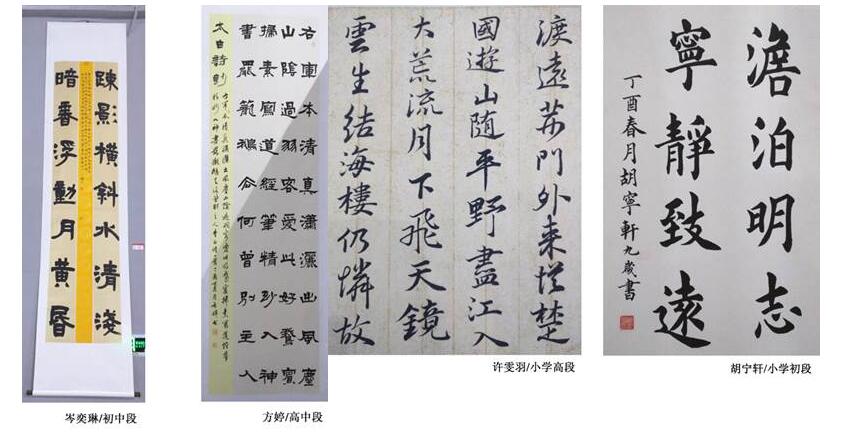 踈影橫斜水清淺
暗香浮動月黃昏
岑奕琳/初中段
右軍本清真瀟灑出風塵
山陰過羽客愛此好鵞賓
掃素寫道經筆精妙入神
書罷籠鵝去何曾別主人
太白詩
方婷/高中段
渡遠荊門外来從楚
國遊山随平野盡江入
大荒流月下飛天鏡
雲生結海樓仍憐故
许雯羽/小学高段
澹泊明志
寧靜致遠
丁酉春月胡寧軒九歲書
胡宁轩/小学初段